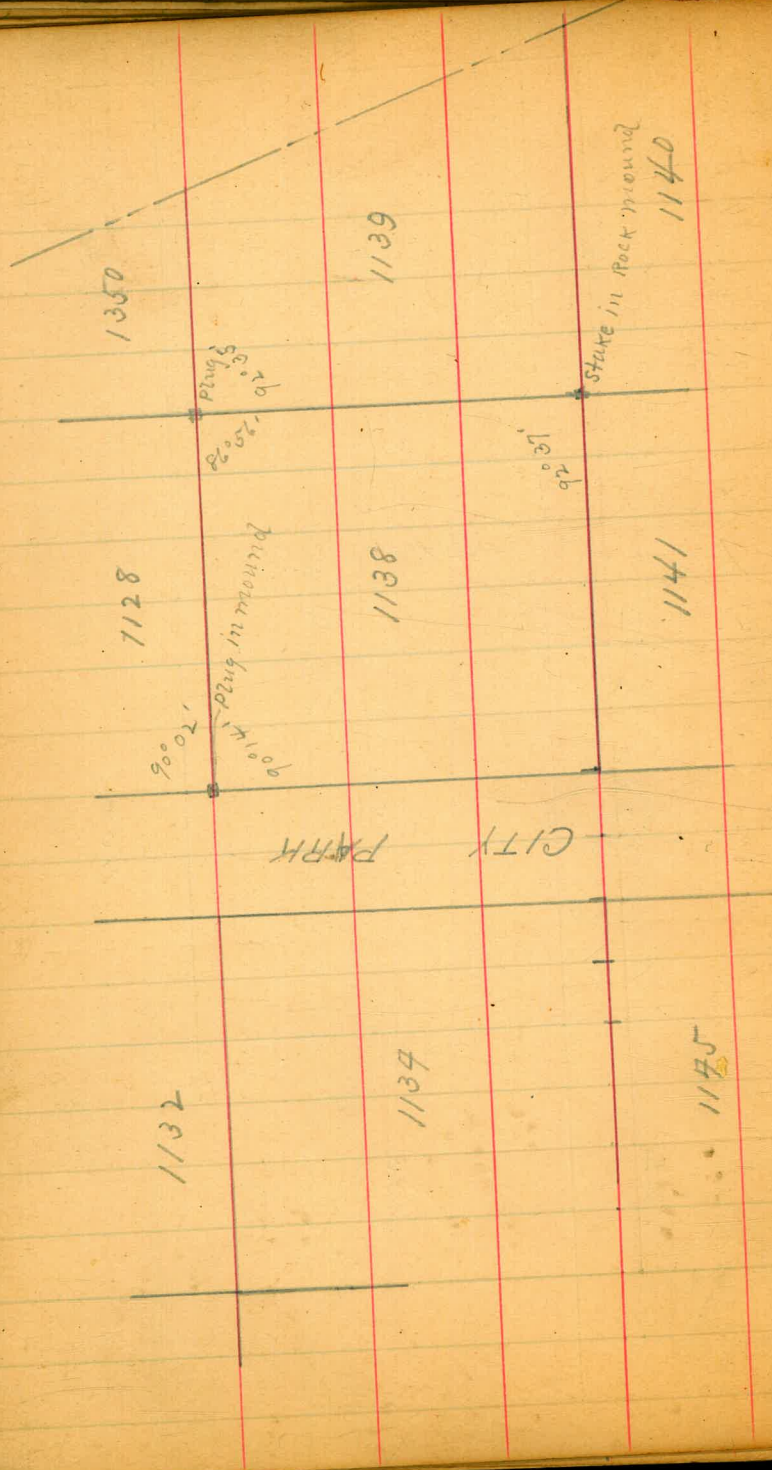 1350
1139
1140
Plug
92° 35'
Stake in Rock mound
92° 37'
1128
1138
1141
Plug in mound
90° 02'
90° 14'
CITY PARK
1132
1134
1145